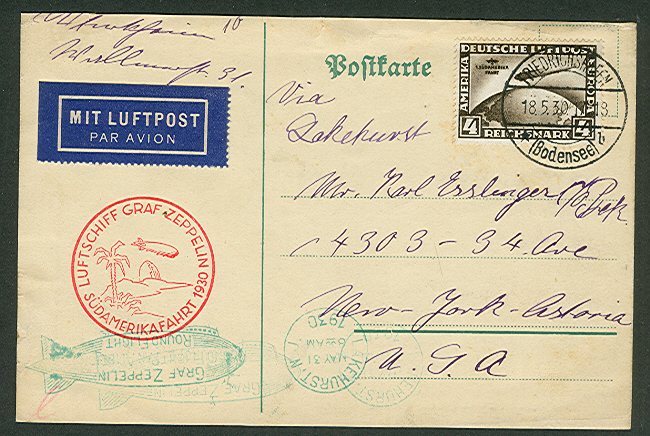 10
31.
MIT LUFTPOST
PAR AVION
LUFTSCHIFF GRAF ZEPPELIN
SÜDAMERIKAFAHRT 1930
Postkarte
DEUTSCHE LUFTPOST
AMERIKA
EUROPA
1. SÜDAMERIKA
FAHRT
4
REICHSMARK
4
FRIEDRICHSHAFEN
18.5.30
(Bodensee)
b
Via
Lakehurst
Mr. Karl Esslinger
4303 - 34. Ave
New-York-Astoria
U.S.A
GRAF ZEPPELIN
ROUND FLIGHT
MAY 31
6 30 AM
1930